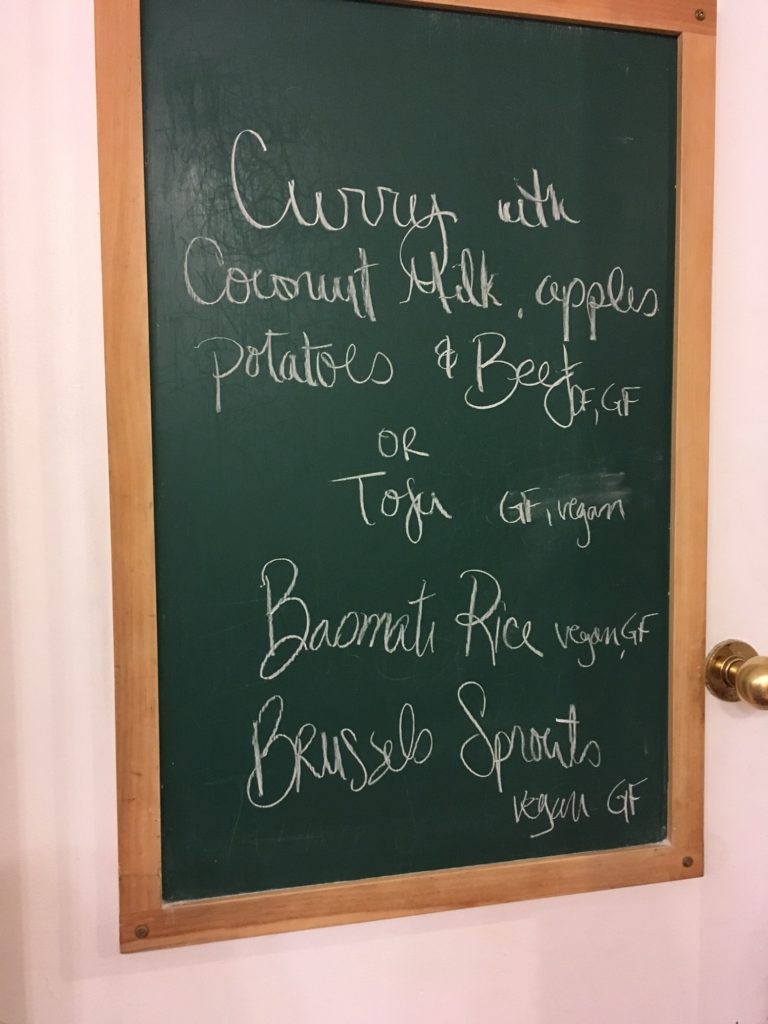 Curry with
Coconut Milk, apples
potatoes & Beef DF, GF
OR
Tofu GF, vegan
Basmati Rice vegan, GF
Brussels Sprouts
vegan GF